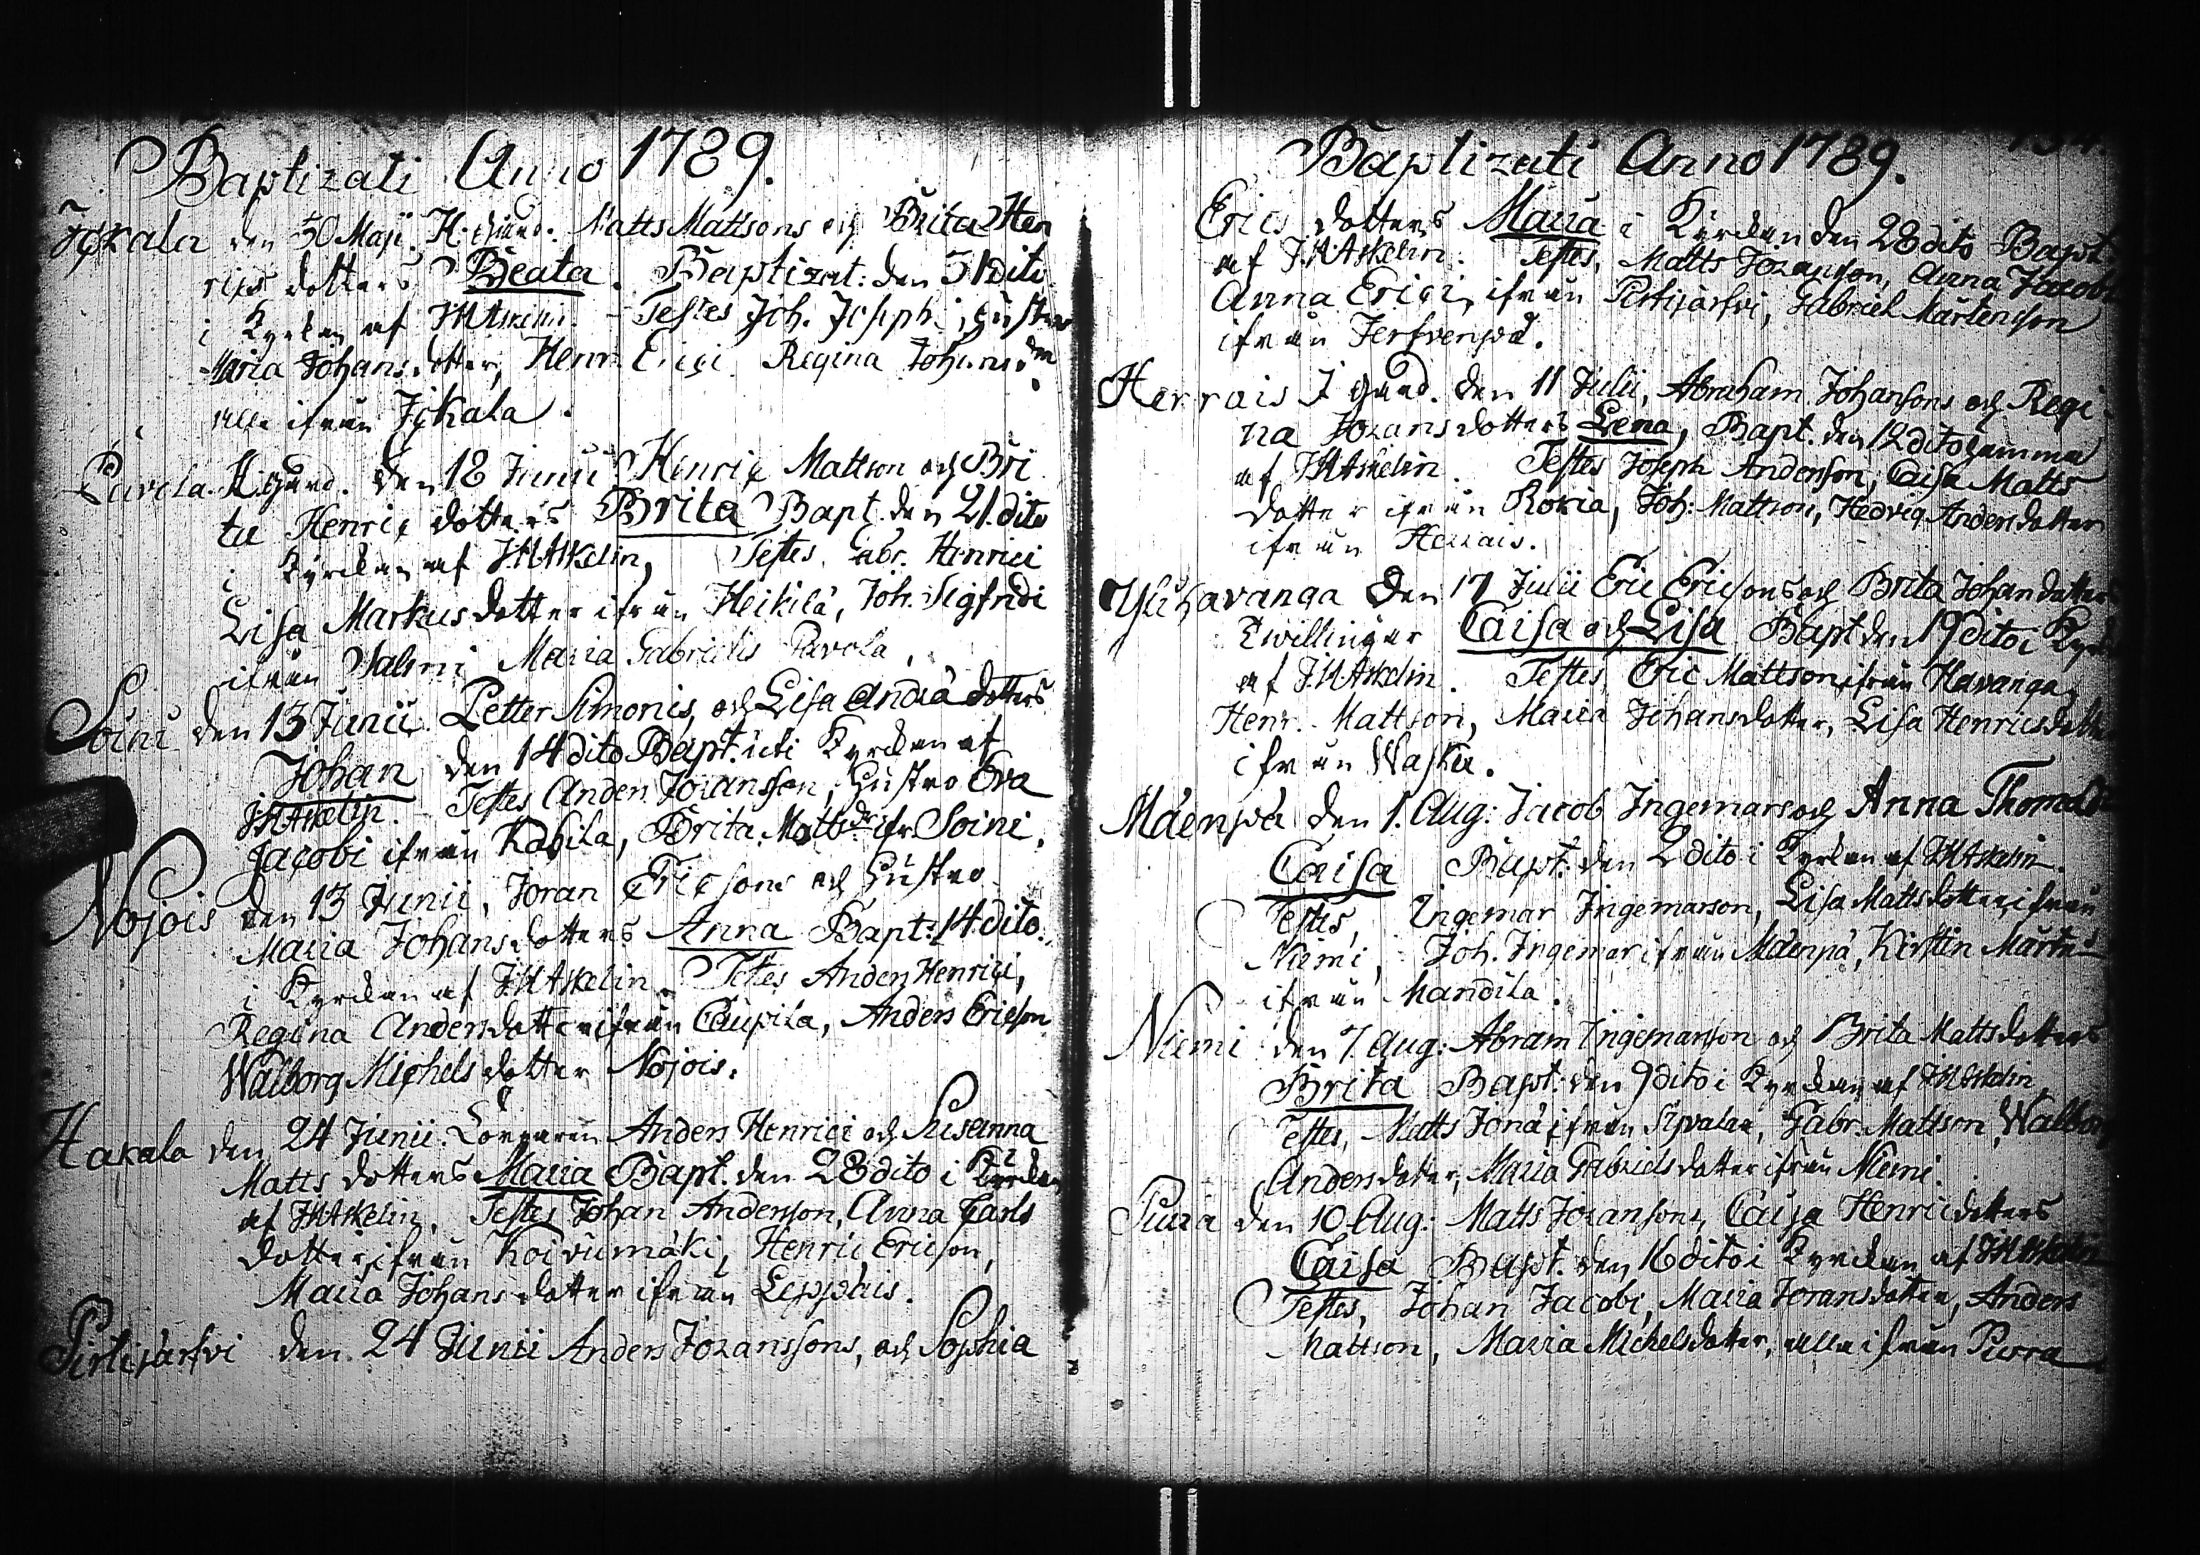 Baptizati Anno 1789.
Jckala den 30 Maji. H. gård. Matts Mattsons och Brita Hen
rics dotters Beata. Baptizat: den 31 dito
i Kyrckan af JMAskelin. Testes Joh. Joseph: hustro
Maria Johans dotter, Henr. Erici Regina Johans dr
alla ifrån Jckala.
Pavila H. gård. den 18 Junii Henric Mattson och Bri
ta Henric dotters Brita Bapt. den 21. dito
i Kyrckan af JMAskelin, Testes, Gabr. Henrici
Lisa Markus dotter ifrån Heikilä, Joh. Sigfridi
ifrån Salmi Maria Gabrielis Pavola,
Soini den 13 Junii. Petter Simonis, och Lisa Andrä dotters
Johan den 14 dito Bapt. uti Kyrckan af
JMAskelin. Testes Anders Joranson, hustro Eva
Jacobi ifrån Kahila, Brita Matts dr ifr. Soini.
Nojois den 13 Junii, Joran Ericsons och hustro
Maria Johans dotters Anna Bapt: 14 dito.
i Kyrckan af JMAskelin. Testes Anders Henrici,
Regina Anders dotter ifrån Caupila, Anders Ericson
Walborg Michels dotter Nojois.
Hakala den 24 Junii. Anders Henrici och Susanna
Matts dotters Maria Bapt. den 28 dito i Kyrckan
af JMAskelin, Testes Johan Anderson, Anna Carls
dotter ifrån Koivumäki, Henric Ericson,
Maria Johans dotter ifrån Leppäis.
Pirtijärfvi den 24 Junii Anders Joranssons, och Sophia
Baptizati Anno 1789.
Erics dotters Maria i Kyrckan den 28 dito Bapt.
af JMAskelin. Testes, Matts Joranson, Anna Jacobi
Anna Erici, ifrån Pirtijärfvi, Gabriel Mårtenson
ifrån Jerfvenpä.
Herrais J gård. den 11 Julii, Abraham Johansons och Regi
na Jorans dotters Lena, Bapt. den 12 dito hemma
af JMAskelin. Testes Joseph Anderson, Caisa Matts
dotter ifrån Rokia, Joh: Mattson, Hedvig Anders dotter
ifrån Herrais.
Yli Havanga den 17 Julii Eric Ericsons och Brita Johan dotters
Twillingar Caisa och Lisa Bapt den 19 dito i Kyrck
af JMAskelin. Testes, Eric Mattson, ifrån Havanga,
Henr. Mattson, Maria Johans dotter, Lisa Henrics dotter
ifrån Waska.
Mäenpä den 1. Aug: Jacob Ingemars och Anna Thomæ
Caisa Bapt: den 2 dito i Kyrckan af JMAskelin.
Testes, Ingemar Ingemarson, Lisa Matts dotter, ifrån
Niemi, Joh. Ingemar ifrån Mäenpä, Kirstin Mårtens
ifrån Mandila.
Niemi den 7. Aug: Abram Ingemarson och Brita Matts dotters
Brita Bapt: den 9 dito i Kyrckan af JMAskelin,
Testes, Matts Jonä ifrån Gabr. Mattson, Walborg
Anders dotter, Maria Gabriels dotter ifrån Niemi.
Purra den 10 Aug: Matts Joransons, Caisa Henric dotters
Caisa Bapt. den 16 dito i Kyrckan af JMAskelin
Testes, Johan Jacobi, Maria Jorans dotter, Anders
Mattson, Maria Michels dotter, alla ifrån Purra